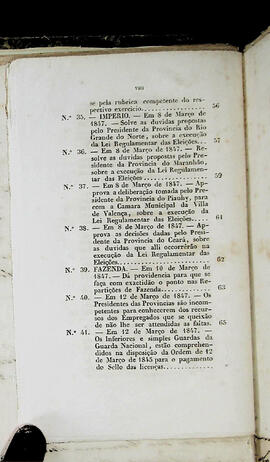 VIII
se pela rubrica competente do res-
pectivo exercicio 56
N.º 35. — IMPERIO. — Em 8 de Março de
1847. — Solve as duvidas propostas
pelo Presidente da Provincia do Rio
Grande do Norte, sobre a execução
da Lei Regulamentar das Eleições 57
N.º 36. — Em 8 de Março de 1847. — Re-
solve as duvidas propostas pelo Pre-
sidente da Provincia do Maranhão,
sobre a execução da Lei Regulamen-
tar das Eleições 59
N.º 37. — Em 8 de Março de 1847. — Ap-
prova a deliberação tomada pelo Presi-
dente da Provincia do Piauhy, para
com a Camara Municipal da Villa
de Valença, sobre a execução da
Lei Regulamentar das Eleições 61
N.º 38. — Em 8 de Março de 1847. — Ap-
prova as decisões dadas pelo Presi-
dente da Provincia do Ceará, sobre
as duvidas que alli occorrêrão na
execução da Lei Regulamentar das
Eleições 62
N.º 39. FAZENDA. — Em 10 de Março de
1847. — Dá providencia para que se
faça com exactidão o ponto nas Re-
partições de Fazenda 63
N.º 40. — Em 12 de Março de 1847. — Os
Presidentes das Provincias são incom-
petentes para conhecerem dos recur-
sos dos Empregados que se queixão
de não lhe ser attendidas as faltas. 65
N.º 41. — Em 12 de Março de 1847. —
Os Inferiores e simples Guardas da
Guarda Nacional, estão comprehen-
didos na disposição da Ordem de 12
de Março de 1845 para o pagamento
do Sello das licenças